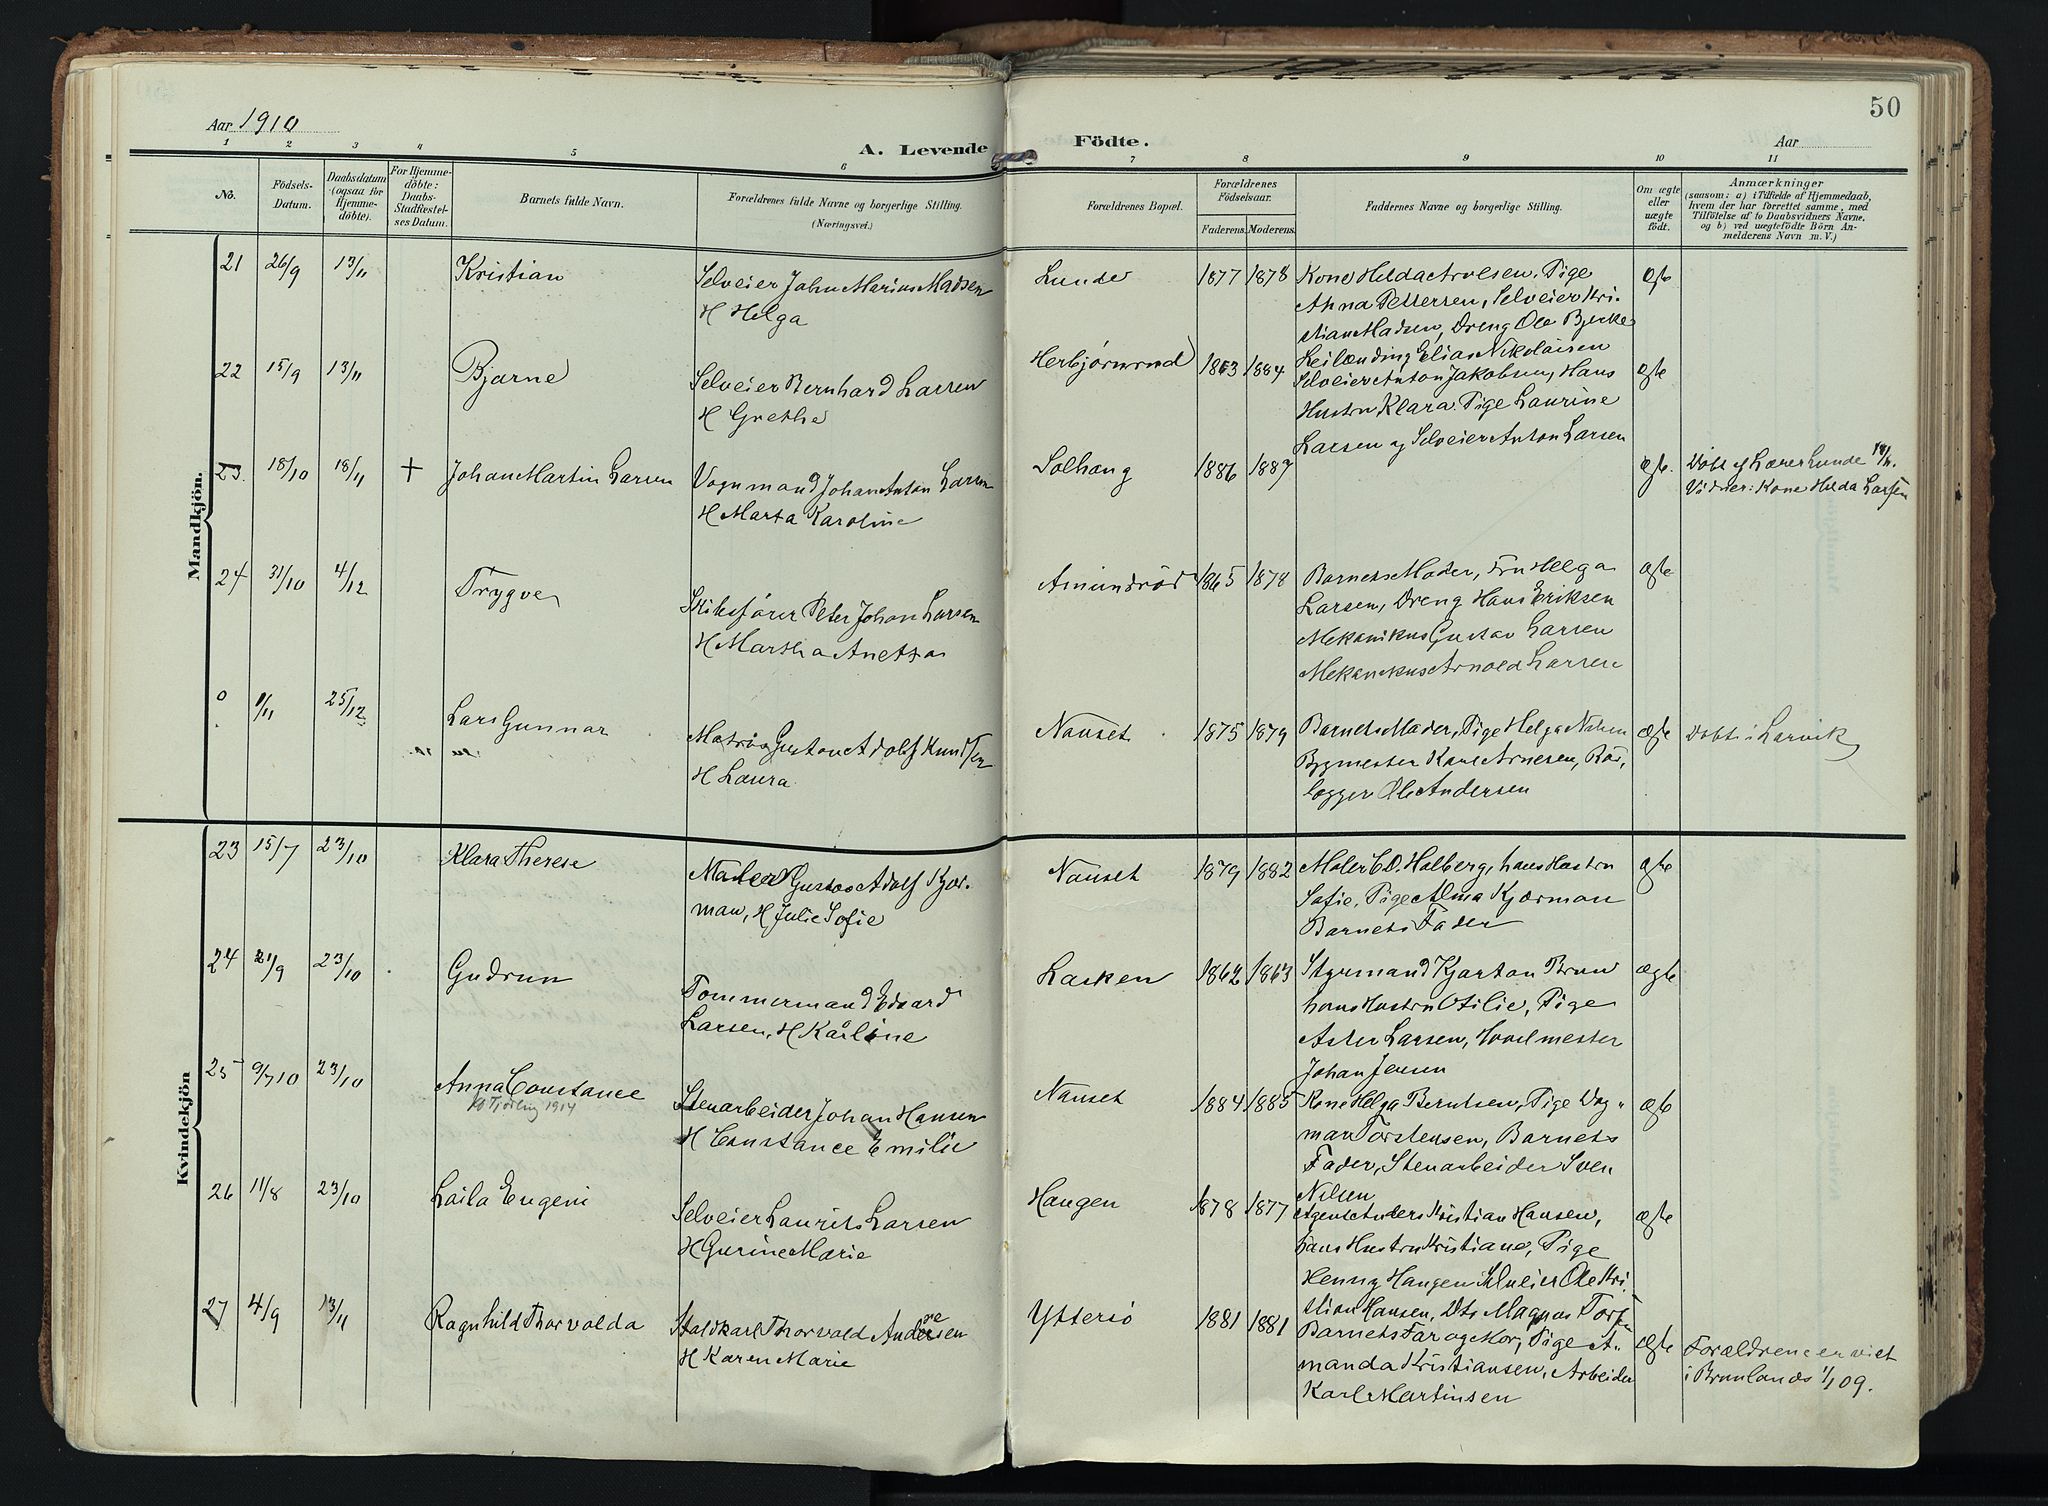 50
Aar 1910
A. Levende Födte.
Aar
1 2 3 4 5 6 7 8 9 10 11
No.
Födsels-
Datum.
Daabsdatum
(ogsaa for
Hjemme-
döbte).
For Hjemme-
döbte:
Daabs-
Stadfæstel-
ses Datum.
Barnets fulde Navn.
Forældrenes fulde Navne og borgerlige Stilling.
(Næringsvei.)
Forældrenes Bopæl.
Forældrenes
Födselsaar.
Faderens. Moderens.
Faddernes Navne og borgerlige Stilling.
Om ægte
eller
uægte
födt.
Anmærkninger
(saasom: a) i Tilfælde af Hjemmedaab,
hvem der har forrettet samme, med
Tilföielse af to Daabsvidners Navne,
og b) ved uægtefödte Börn An-
melderens Navn m. V.)
Mandkjön.
21 26/9 13/11 Kristian
Selveier Johan Marius Madsen
H Helga
Lunde 1877 1878
Kone Helda Arvesen, Pige
Anna Pettersen, Selveier Kri-
stian Madsen, Dreng Ole Bjerke
ægte
22 15/9 13/11 Bjarne
Selveier Bernhard Larsen
H Grethe
Herbjørnrud 1883 1884
Leilænding Elias Nikolaisen
Selveier Anton Jakobsen, Hans
Hustru Klara. Pige Laurine
Larsen og Selveier Anton Larsen
ægte
23 18/10 18/11 + Johan Martin Larsen
Vognmand Johan Anton Larsen
H Marta Karoline
Solhaug 1886 1887
ægte.
Döbt af Lærer Lunde 18/11.
Vidner: Kone Hilda Larsen
24 31/10 4/12 Trygve
Skibsfører Peter Johan Larsen
H Martha Anetta
Amundröd 1865 1878
Barnets Moder, Fru Helga
Larsen, Dreng Hans Eriksen
Mekanikus Gustav Larsen
Mekanikus Arnold Larsen
ægte
0 1/11 25/12 Lars Gunnar
Matros Gustav Adolf Knudsen
H Laura
Nanset 1875 1879
Barnets Moder, Pige Helga Nilsen
Bygmester Karl Arnesen, Rör-
lægger Ole Andersen
ægte
Döbt i Larvik
Kvindekjön
23 15/7 23/10 Klara Therese
Maler Gustav Adolf Kjær-
man, H Julie Sofie
Nanset 1879 1882
Maler C.D. Halberg, hans Hustru
Sofie, Pige Alma Kjærman
Barnets Fader
ægte
24 21/9 23/10 Gudrun
Tømmermand Edvard
Larsen, H Karline
Lasken 1862 1863
Styrmand Kjartan Bruu
hans Hustru Otilie, Pige
Aster Larsen, Hvalmester
Johan Jensen
ægte
25 9/7 10 23/10 Anna Constance
Stenarbeider Johan Hansen
H Constance Emilie
Nanset 1884 1885
Kone Helga Berntsen, Pige Dag-
mar Torstensen, Barnets
Fader, Stenarbeider Sven
Nilsen
ægte
26 11/8 23/10 Laila Eugeni
Selveier Laurits Larsen
H Gurine Marie
Haugen 1878 1877
Agent Anders Kristian Hansen,
hans Hustru Kristiane, Pige
Henny Haugen Selveier Ole Kri-
stian Hansen, Dts Magnus
ægte
27 4/9 13/11 Ragnhild Thorvalda
Staldkarl Thorvald Andersen
H Karen Marie
Yttersö 1881 1881
Barnets Far og Mor, Pige A-
manda Kristiansen, Arbeider
Karl Martinsen
ægte
Forældrene er viet
i Brunlanes 1/1 09.